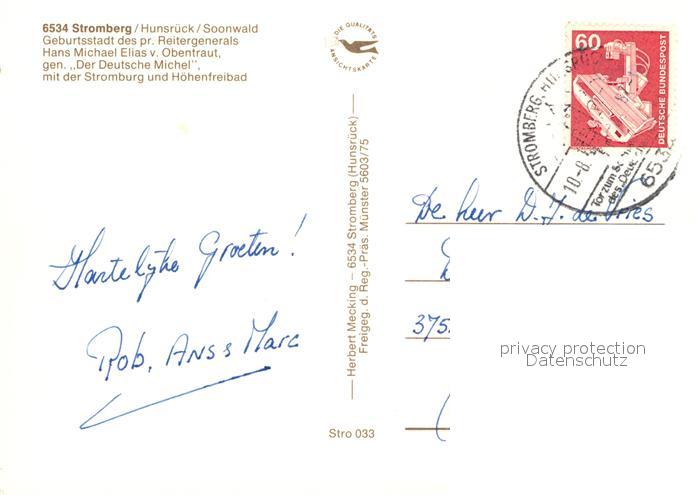 6534 Stromberg/Hunsrück/Soonwald
Geburtsstadt des pr. Reitergenerals
Hans Michael Elias v. Obentraut,
gen. „Der Deutsche Michel",
mit der Stromburg und Höhenfreibad
DIE QUALITÄTS
ANSICHTSKARTE
60
DEUTSCHE BUNDESPOST
STROMBERG, HUNSRÜCK
10.-8.
Tor zum
des Deut
653
Hartelijke Groeten!
Rob, Ans & Marc
Herbert Mecking – 6534 Stromberg (Hunsrück)
Freigeg. d. Reg.-Präs. Münster 5603/75
Stro 033
De heer D.J. de Vries
375
privacy protection
Datenschutz